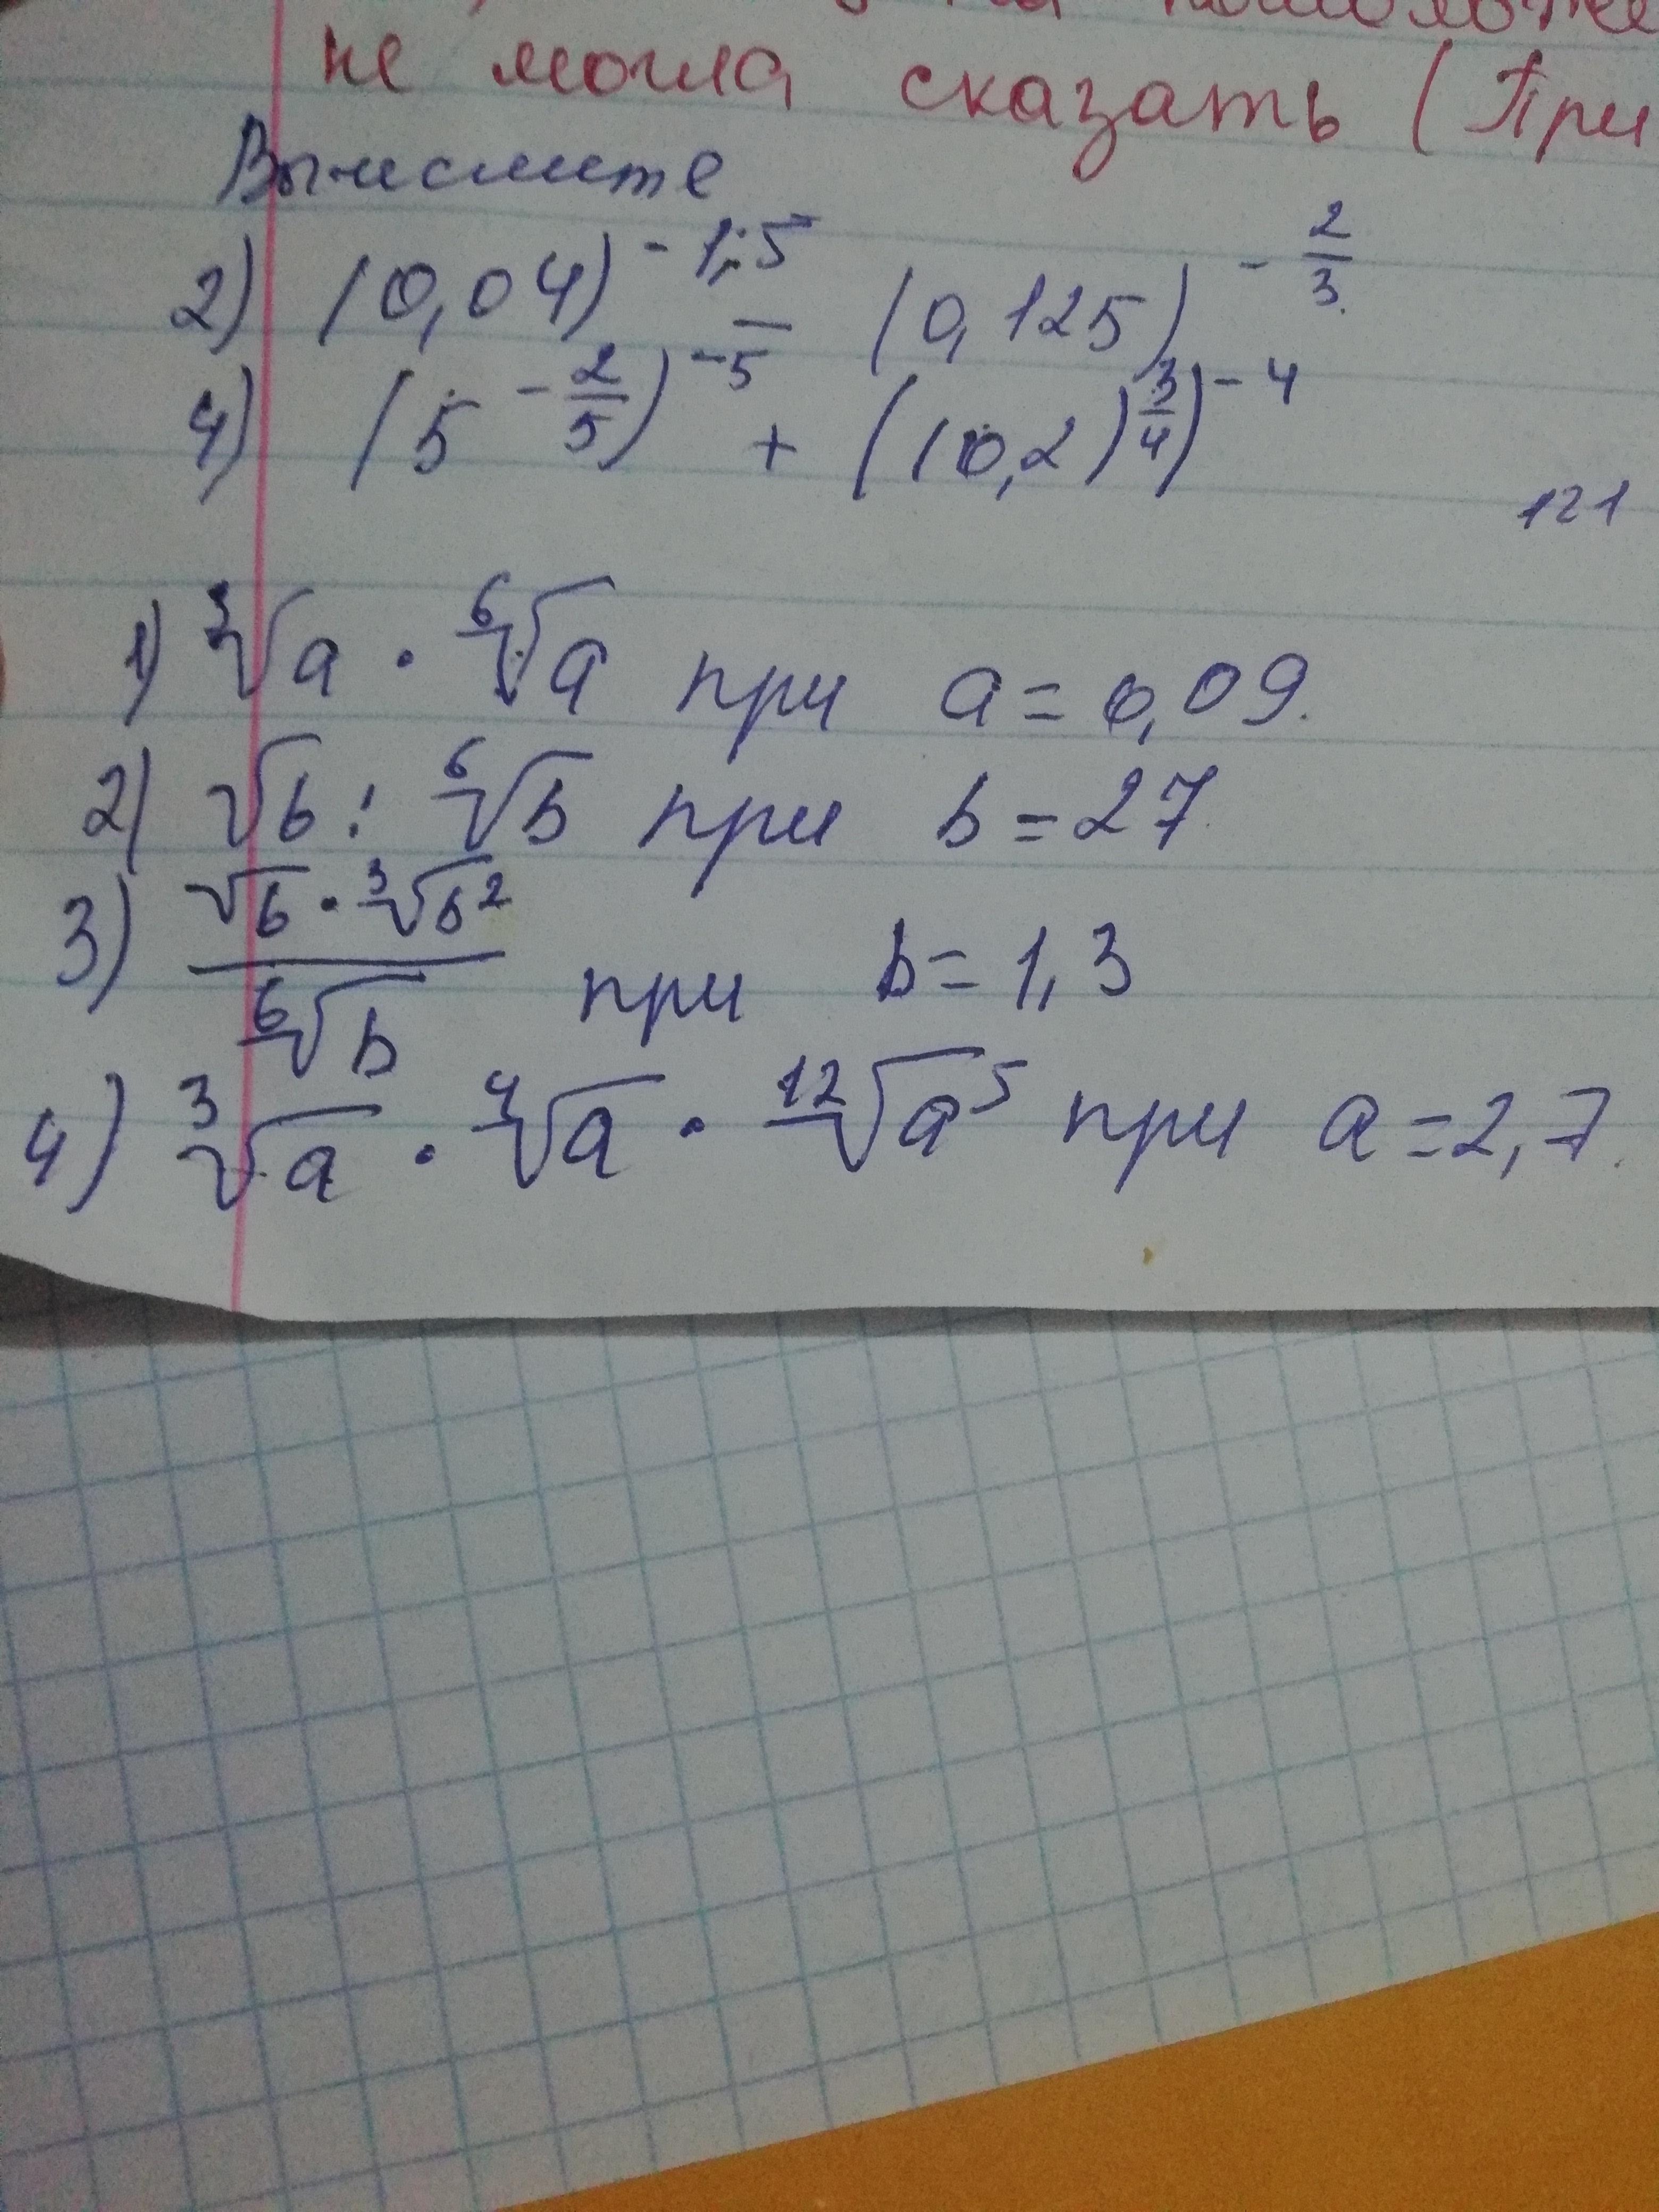 не могла сказать (При
Вычислите
2) (0,04)^{-1,5} - (0,125)^{-\frac{2}{3}}
4) (5^{-\frac{2}{5}})^{-5} + ((0,2)^{\frac{3}{4}})^{-4}
121
1) ∛a · ⁶√a при a = 0,09.
2) √b : ⁶√b при b = 27.
3) \frac{√b · ∛b²}{⁶√b} при b = 1,3
4) ∛a · ⁴√a · ¹²√a⁵ при a = 2,7.